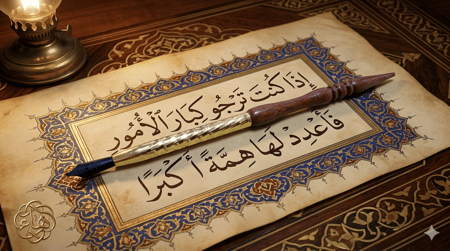 إِذَا كُنْتَ تَرْجُو كِبَارَ الْأُمُورِ
فَأَعْدِدْ لَهَا هِمَّةً أَكْبَرَا